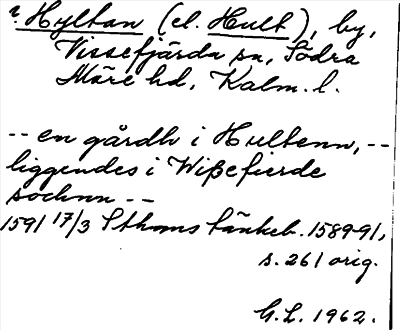 ? Hyltan (el. Hult), by,
Vissefjärda sn, Södra
Möre hd, Kalm. l.
-- en gårdh i Hultenn, --
liggendes i Wißefierde
sochnn --
1591 17/3 Sthoms tänkeb. 1589-91,
s. 261 orig.
G.L. 1962.